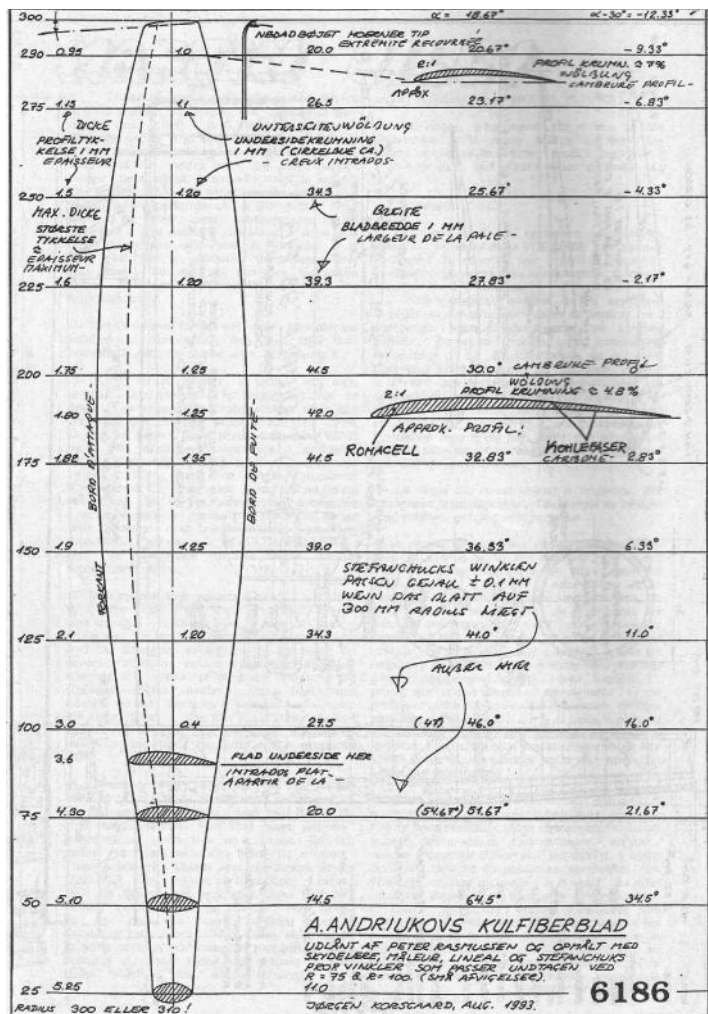 300 α = 18.67° α-30° = -12.33°
NBDAD BØJET HOERNER TIP
EXTREMITÉ RECOURBÉE
290 0.95 1.0 20.0 20.67° - 9.33°
2:1 PROFIL KRUMN. ≈ 7%
WÖLBUNG
CAMBRURE PROFIL-
APPROX
275 1.15 1.1 26.5 23.17° - 6.83°
DICKE
PROFILTYK-
KELSE I MM
EPAISSEUR
UNTERSEITENWÖLBUNG
UNDERSIDEKRUMNING
I MM (CIRKELBUE CA.)
- CREUX INTRADOS-
250 1.5 1.20 34.3 25.67° - 4.33°
MAX. DICKE
STØRSTE
TYKKELSE
EPAISSEUR
MAXIMUM-
BREITE
BLADBREDDE I MM
LARGEUR DE LA PALE -
225 1.6 1.20 39.3 27.83° - 2.17°
BORD D'ATTAQUE -
BORD DE FUITE -
200 1.75 1.25 41.5 30.0° CAMBRURE PROFIL 0
WÖLBUNG
2:1 PROFIL KRUMNING ≈ 4.8%
1.80 1.25 42.0
APPROX. PROFIL!
ROHACELL KOHLEFASER
CARBONE-
175 1.82 1.35 41.5 32.83° 2.83°
150 1.9 1.25 39.0 36.33° 6.33°
FORKANT
STEFANCHUCKS WINKLEN
PASSEN GENAU ± 0.1 MM
WENN DAS BLATT AUF
300 MM RADIUS LIEGT
125 2.1 1.20 34.3 41.0° 11.0°
AUßER HIER
100 3.0 0.4 27.5 (47) 46.0° 16.0°
3.6 FLAD UNDERSIDE HER
INTRADOS PLAT
APARTIR DE LA -
75 4.30 20.0 (54.67°) 51.67° 21.67°
50 5.10 14.5 64.5° 34.5°
A. ANDRIUKOVS KULFIBERBLAD
UDLÅNT AF PETER RASMUSSEN OG OPMÅLT MED
SKYDELÆRE, MÅLEUR, LINEAL OG STEFANCHUKS
PROPVINKLER SOM PASSER UNDTAGEN VED
R = 75 & R = 100. (SMÅ AFVIGELSER).
25 5.25 11.0
6186
RADIUS 300 ELLER 310!
JØRGEN KORSGAARD, AUG. 1993.